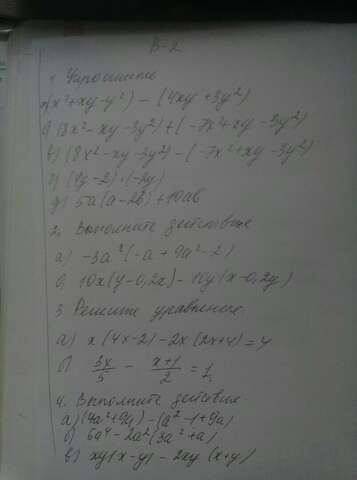 В-2
1. Упростите
а)(x²+xy-y²) - (4xy+3y²)
б) (8x²-xy-3y²)+(-7x²+xy-3y²)
в) (8x²-xy-3y²)-(-7x²+xy-3y²)
г) (9y-2)·(-2y)
д) 5a(a-2b)+10ab
2. Выполните действие
а) -3a²(-a+9a²-2)
б) 10x(y-0,2x)-10y(x-0,2y)
3. Решите уравнение
а) x(4x-2)-2x(2x+4)=4
б) 3x/5 - (x+1)/2 = 1
4. Выполните действие
а) (4a²+9a)-(a²-1+9a)
б) 6a⁴-2a²(3a²+a)
в) xy(x-y)-2xy(x+y)